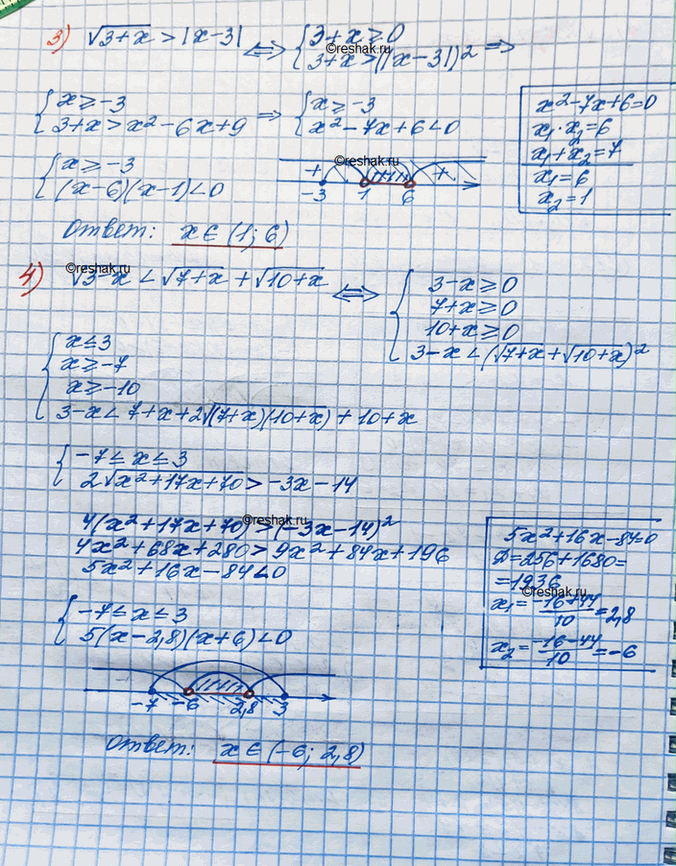 3) √3+x > |x-3| ⟺ { 3+x ≥ 0
3+x > (|x-3|)2
⇒
©reshak.ru
{ x ≥ -3
3+x > x2-6x+9
⇒ { x ≥ -3
x2-7x+6<0
x2-7x+6=0
x1·x2=6
x1+x2=7
x1=6
x2=1
{ x ≥ -3
(x-6)(x-1)<0
©reshak.ru
+ +
-3 1 6
Ответ: x ∈ (1; 6)
©reshak.ru
4) √3-x < √7+x + √10+x ⟺ { 3-x ≥ 0
7+x ≥ 0
10+x ≥ 0
3-x < (√7+x + √10+x)2
{ x ≤ 3
x ≥ -7
x ≥ -10
3-x < 7+x+2√(7+x)(10+x) + 10+x
{ -7 ≤ x ≤ 3
2√x2+17x+70 > -3x-14
4(x2+17x+70) > (-3x-14)2
©reshak.ru
4x2+68x+280 > 9x2+84x+196
5x2+16x-84<0
5x2+16x-84=0
D=256+1680=
=1936
©reshak.ru
x1=-16+44/10=2,8
x2=-16-44/10=-6
{ -7 ≤ x ≤ 3
5(x-2,8)(x+6)<0
-7 -6 2,8 3
Ответ: x ∈ (-6; 2,8)